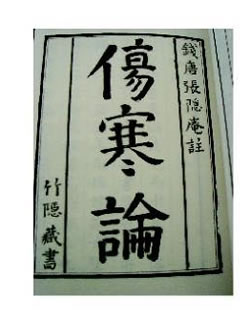 錢唐張隱庵註
傷寒論
竹隱藏書